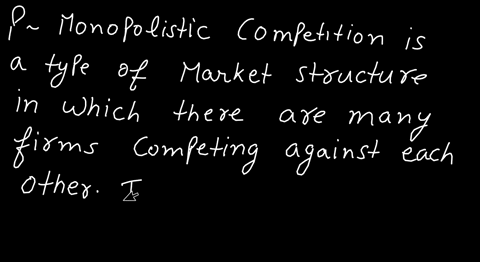 P~ Monopolistic Competition is
a type of Market structure
in which there are many
firms Competing against each
other. I